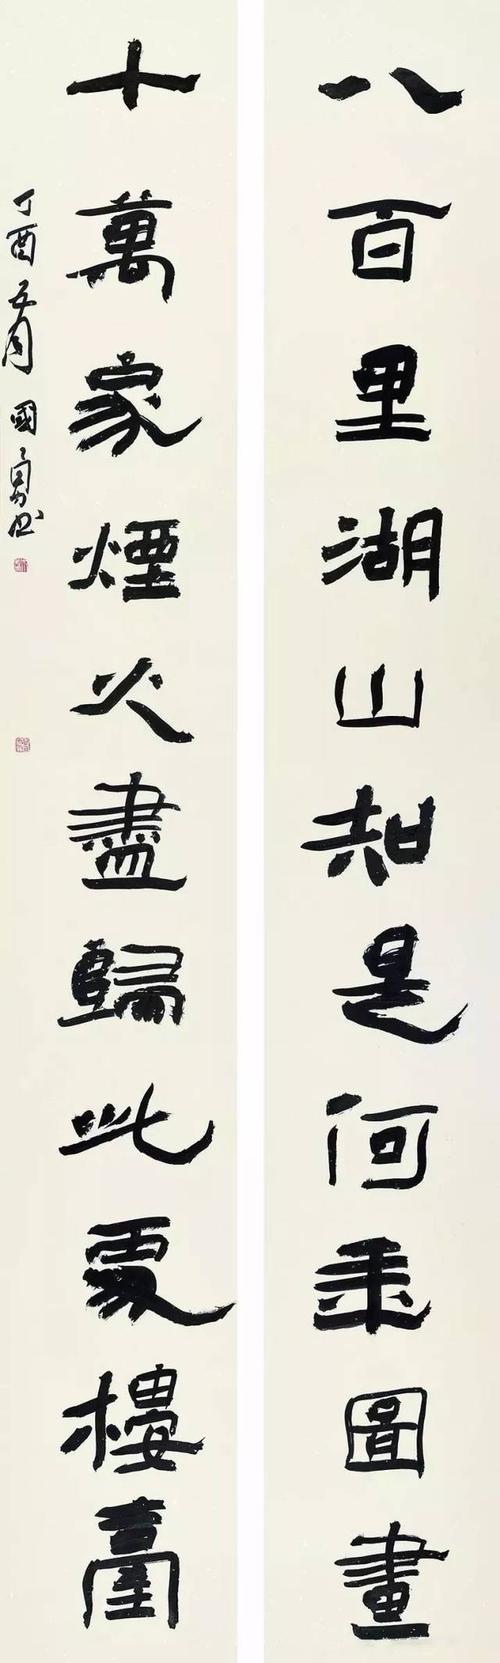 八百里湖山知是何年圖畫
十萬家煙火盡歸此處樓臺
丁酉五月國勇書